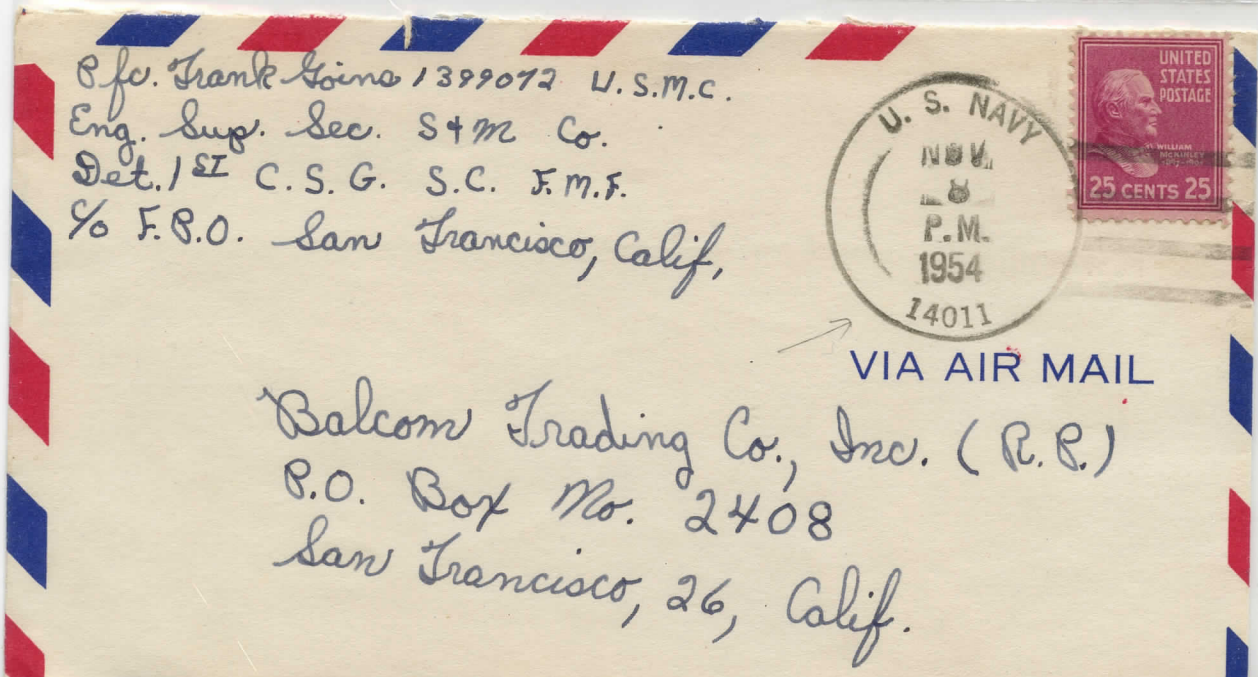 Pfc. Frank Goins 1399072 U.S.M.C.
Eng. Sup. Sec. S+M Co.
Det. 1ST C.S.G. S.C. F.M.F.
c/o F.P.O. San Francisco, Calif,
U. S. NAVY
NOV
8
P.M.
1954
14011
UNITED
STATES
POSTAGE
WILLIAM
MCKINLEY
25 CENTS 25
VIA AIR MAIL
Balcom Trading Co., Inc. (R.P.)
P.O. Box No. 2408
San Francisco, 26, Calif.